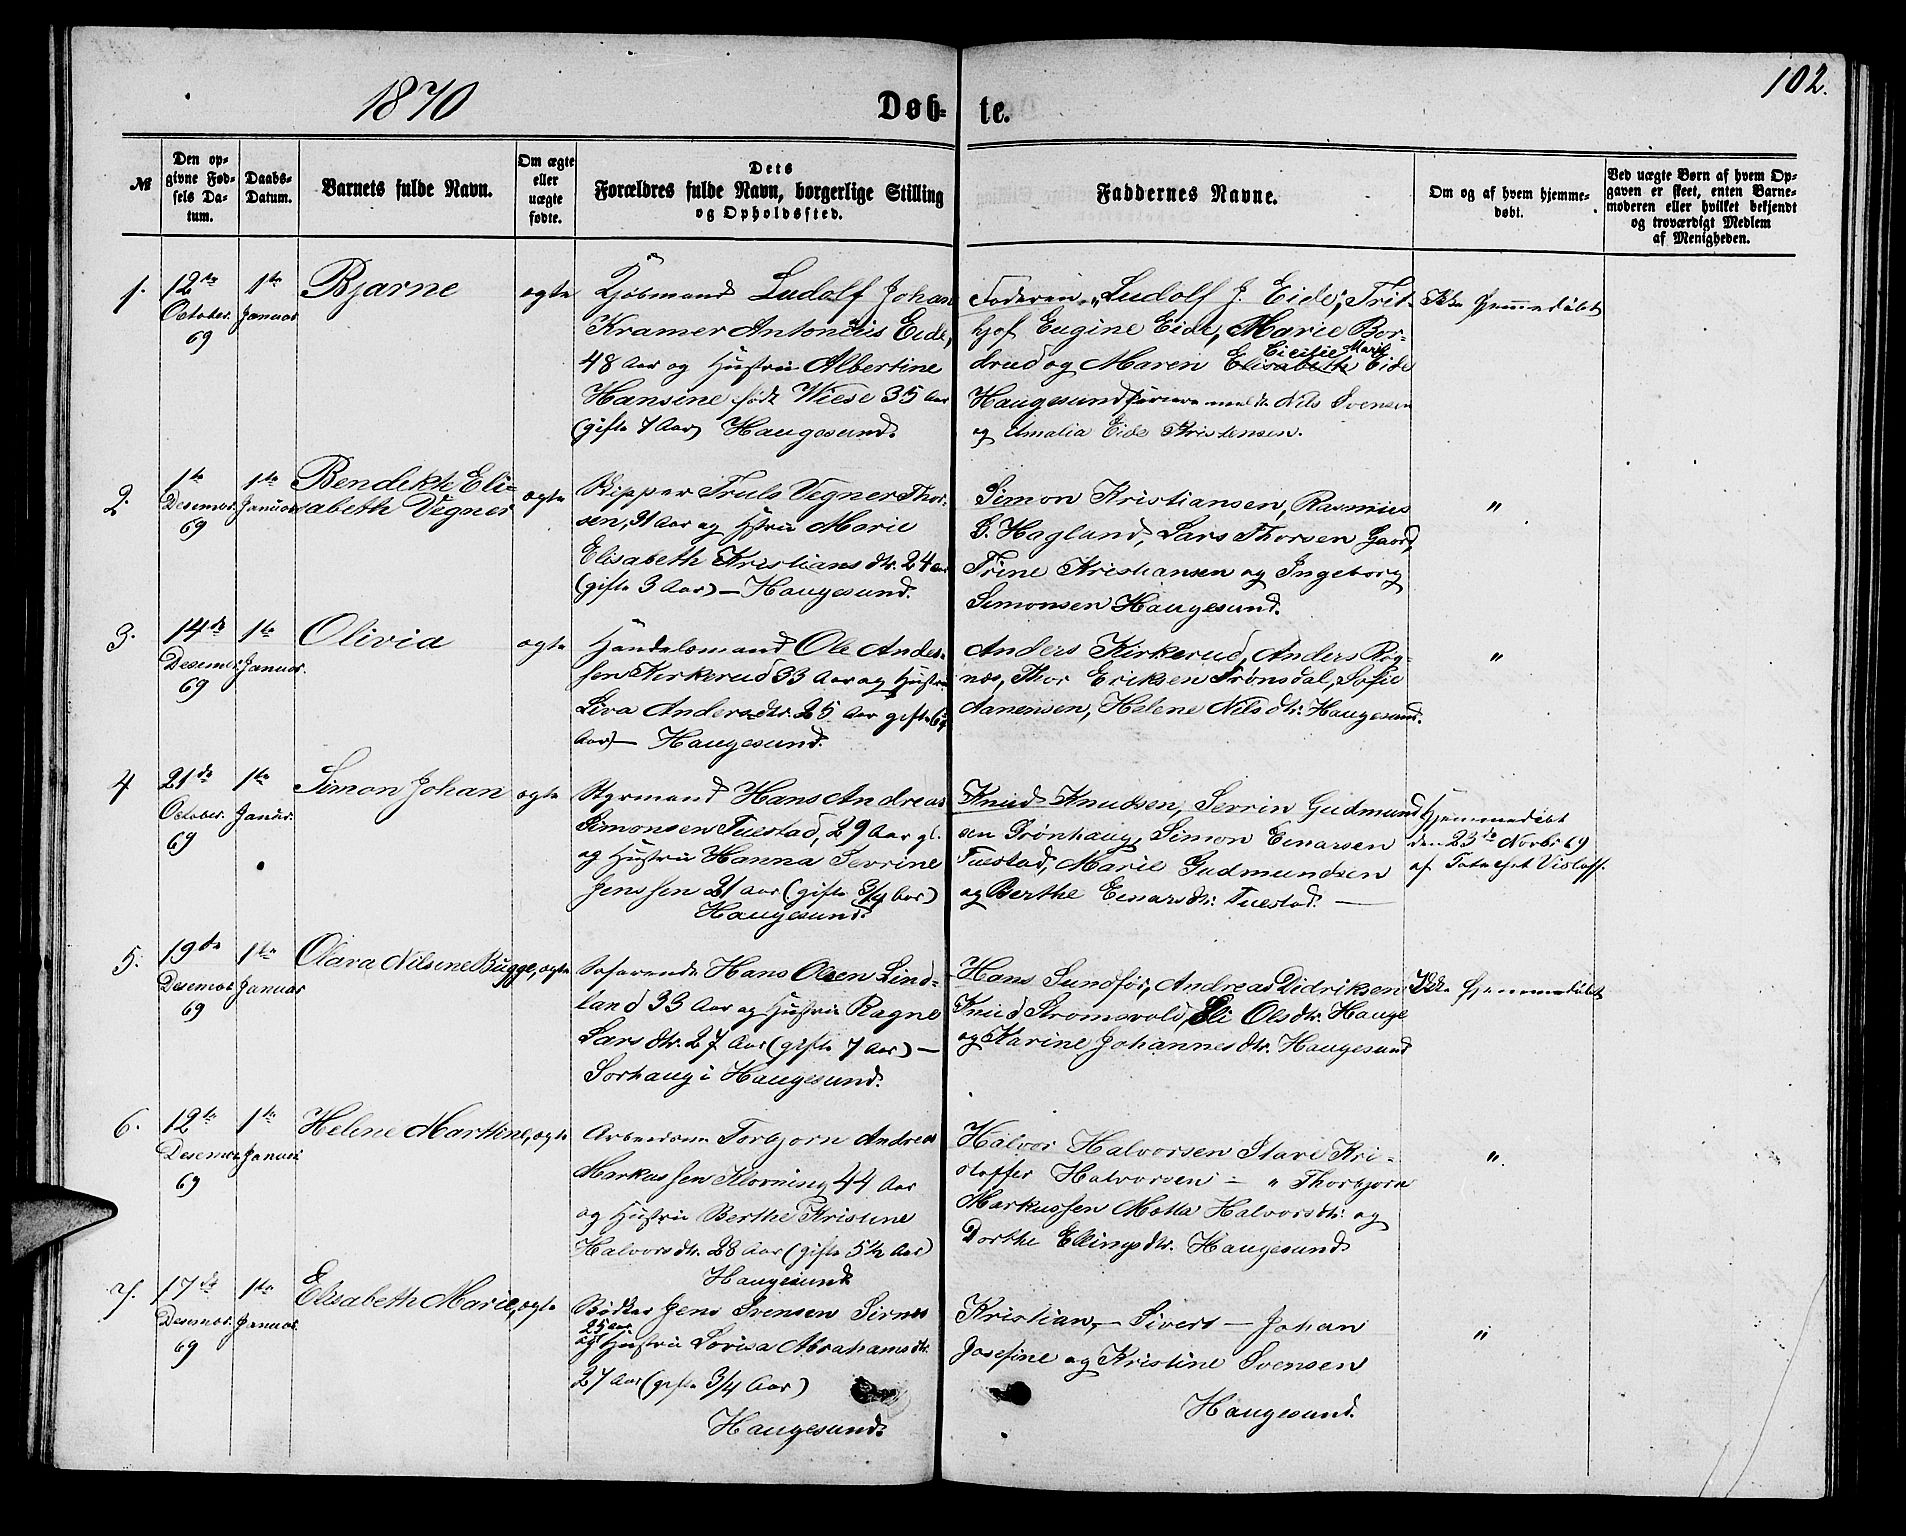 102.
1870
Døb- te.
№
Den op-
givne Fød-
sels Da-
tum.
Daabs-
Datum.
Barnets fulde Navn.
Om ægte
eller
uægte
fødte.
Dets
Forældres fulde Navn, borgerlige Stilling
og Opholdssted.
Faddernes Navne.
Om og af hvem hjemme-
døbt.
Ved uægte Børn af hvem Op-
gaven er skeet, enten Barne-
moderen eller hvilket bekjendt
og troværdigt Medlem
af Menigheden.
1.
12te
October.
69
1te
Januar
Bjarne
ægte
Kjøbmand Ludolf Johan
Kramer Antonius Eide,
48 Aar og Hustru Albertine
Hansine født Wiese 35 Aar
(gifte 7 Aar) Haugesund.
Faderen Ludolf J. Eide, Frit-
hjof Eugine Eide, Marie Bor-
drud og Maren Elisabeth Eide
Cicilie Marie
Haugesund Nils Svensen
og Amalia Eide Kristensen.
Ikke hjemmedøbt
2.
1te
Desembr.
69
1te
Januar
Bendikte Eli-
sabeth Vegner
ægte
Skipper Truls Vegner Thor-
sen, 31 Aar og Hstru Marie
Elisabeth Kristiansdtr. 24 Aar
(gifte 3 Aar) — Haugesund.
Simon Kristiansen, Rasmus
B. Haglund, Lars Thorsen Gaard,
Trine Kristiansen og Ingeborg
Simonsen Haugesund.
"
3.
14de
Desembr.
69
1te
Januar.
Olivia
ægte
Handelsmand Ole Anders-
sen Kirkerud 33 Aar og Hustru
Liva Andersdtr. 25 Aar gifte 6¼
Aar) — Haugesund.
Anders Kirkerud, Anders Røg-
næs, Thor Eriksen Frønsdal, Sofie
Aanensen, Helene Nilsdtr. Haugesund.
"
4
21de
October.
69
1te
Januar.
Simon Johan
ægte
Styrmand Hans Andreas
Simonsen Tuestad, 29 Aar gl.
og Hustru Hanna Serrine
Jenssen 21 Aar (gifte 3/4 Aar)
Haugesund.
Knud Knudsen, Serrin Gudmund
sen Grønhaug, Simon Einarsen
Tuestad, Marie Gudmundsen
og Berthe Einarsdtr. Tuestad. —
Hjemmedøbt
den 23de Novbr 69
af
5.
19de
Desembr
69
1te
Januar
Olava Nilsine Bugge,
ægte
Søfarende Hans Olsen Lind-
land 33 Aar og Hustru Ragne
Larsdtr. 27 Aar (gifte 7 Aar) —
Sørhaug i Haugesund.
Hans Sundfør, Andreas Didriksen
Knud Strømsvold, Eli Olsdtr. Hauge
og Karine Johannesdtr. Haugesund
Ikke hjemmedøbt
6.
12te
Desembr.
69
1te
Januar
Helene Marthine,
ægte
Arbeidsm. Torbjørn Andreas
Markussen Kløvning 44 Aar
og Hustru Berthe Kristine
Halvorsdtr. 28 Aar (gifte 5½ Aar)
Haugesund.
Halvor Halvorsen Stave Kri-
stoffer Halvorsen — " Thorbjørn
Markussen Motta Halvorsdtr. og
Dorthe Ellingsdtr. Haugesund
"
7.
17de
Desembr.
69
1te
Januar.
Elisabeth Marie,
ægte
Bødker Jens Svensen Sirnes
25 Aar
og Hustru Lovisa Abrahamsdtr.
27 Aar (gifte 3/4 Aar)
Haugesund.
Kristian, — Sivert — Johan
Josefine og Kristine Svensen
Haugesund.
"